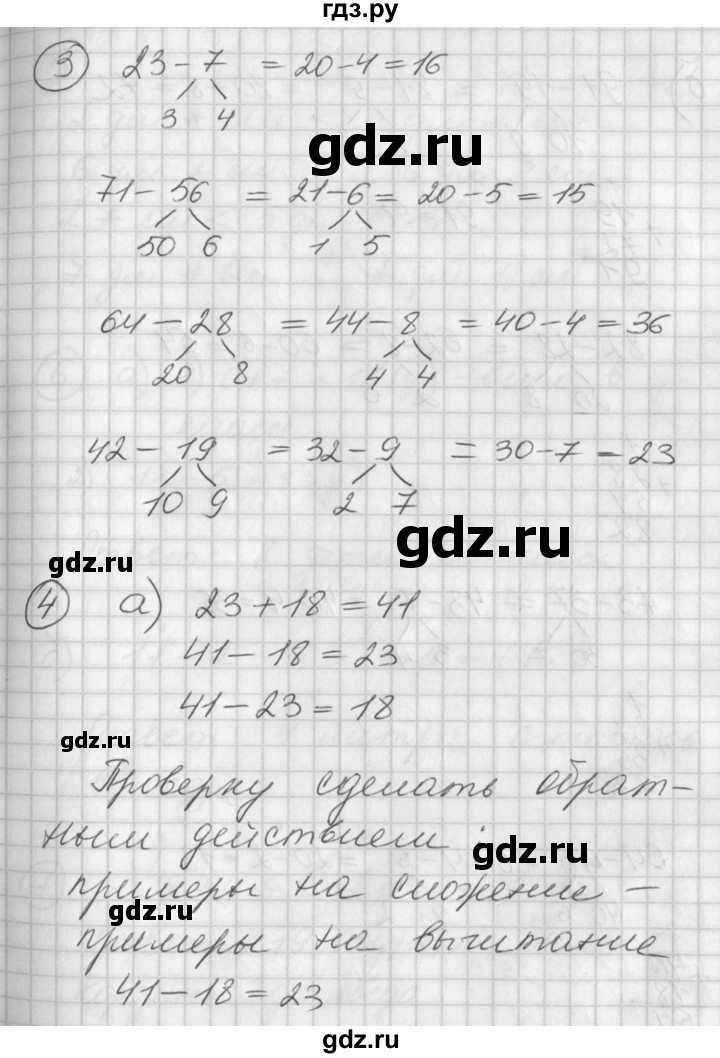 гдз.ру
3 23-7 = 20-4=16
3 4
gdz.ru
71-56 = 21-6= 20-5=15
50 6 1 5
64-28 = 44-8 =40-4=36
20 8 4 4
42-19 = 32-9 =30-7-23
10 9 2 7
gdz.ru
gdz.ru
4 а) 23+18=41
41-18=23
41-23=18
gdz.ru
Проверку сделать обрат-
ным действием:
gdz.ru
примеры на сложение -
gdz.ru
примеры на вычитание
41-18=23
gdz.ru